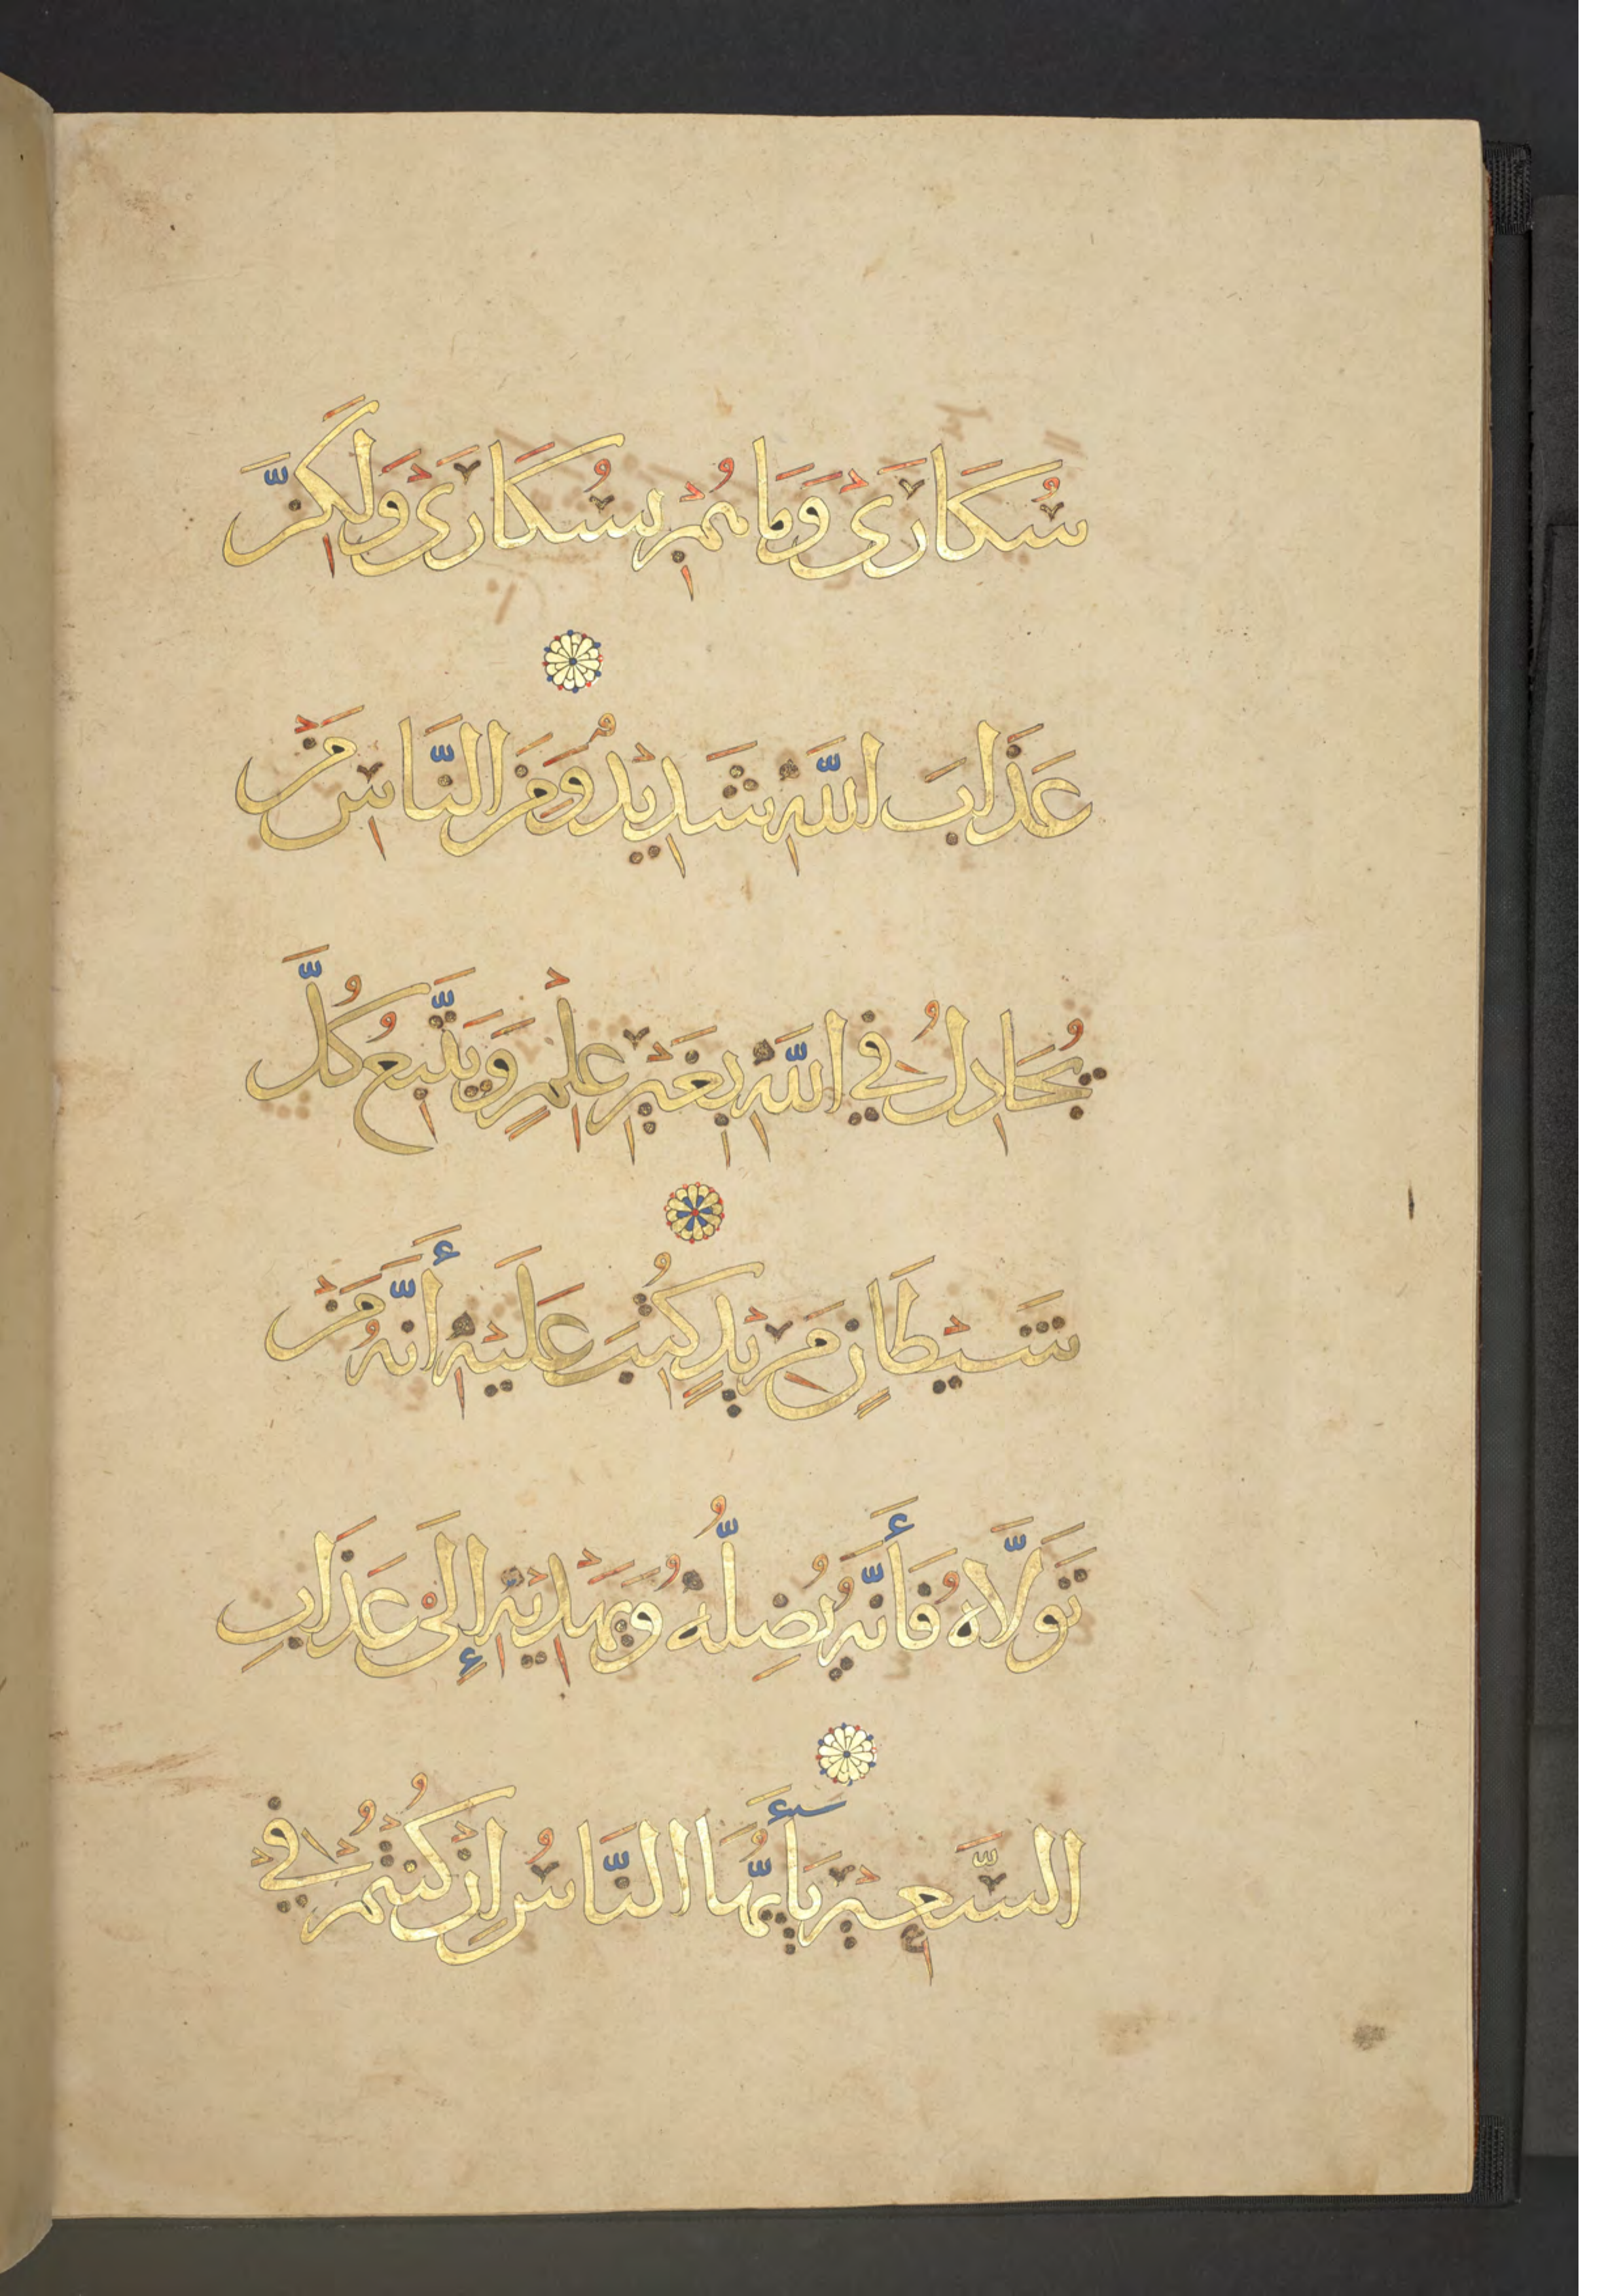 سُكَارَىٰ وَمَا هُمْ بِسُكَارَىٰ وَلَكِنَّ
عَذَابَ اللَّهِ شَدِيْدٌ وَمِنَ النَّاسِ مَنْ
يُجَادِلُ فِي اللَّهِ بِغَيْرِ عِلْمٍ وَيَتَّبِعُ كُلَّ
شَيْطَانٍ مَرِيْدٍ كُتِبَ عَلَيْهِ أَنَّهُ مَنْ
تَوَلَّاهُ فَأَنَّهُ يُضِلُّهُ وَيَهْدِيْهِ إِلَى عَذَابِ
السَّعِيْرِ يَأَيُّهَا النَّاسُ إِنْ كُنْتُمْ فِي